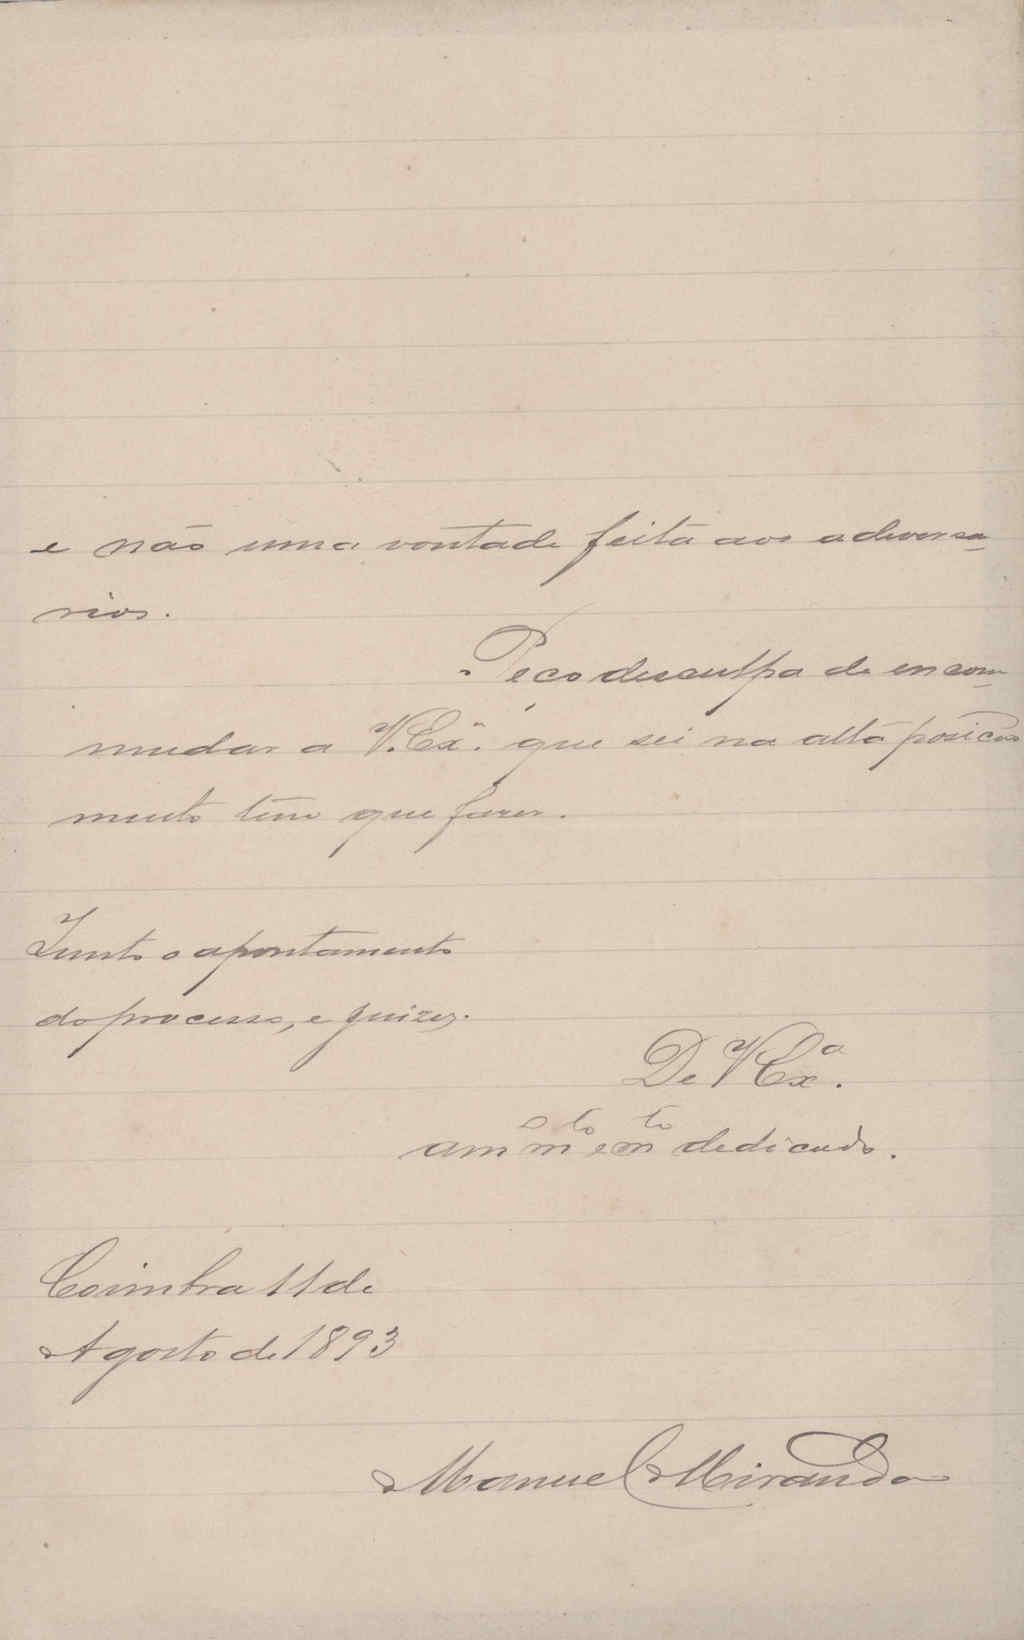 e não uma vontade feita aos adversa-
rios.
Peço desculpa de incom-
mudar a V. Exª. que sei na alta posicão
muito tem que fazer.
Junto o apontamento
do processo, e juizes.
De V Exª.
amº mtº e mtº dedicado.
Coimbra 11 de
Agosto de 1893
Manuel Miranda